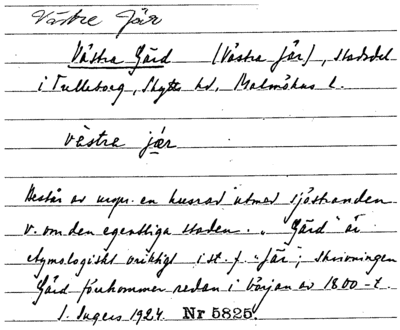 Västre Jär
Västra Gärd (Västra Jär), stadsdel
i Trelleborg, Skytts hd, Malmöhus l.
västra jär
Består av urspr. en husrad utmed sjöstranden
v. om den egentliga staden. "Gärd" är
etymologiskt oriktigt i st. f. "jär"; skrivningen
Gärd förekommer redan i början av 1800-t.
I. Ingers 1924. Nr 5825.